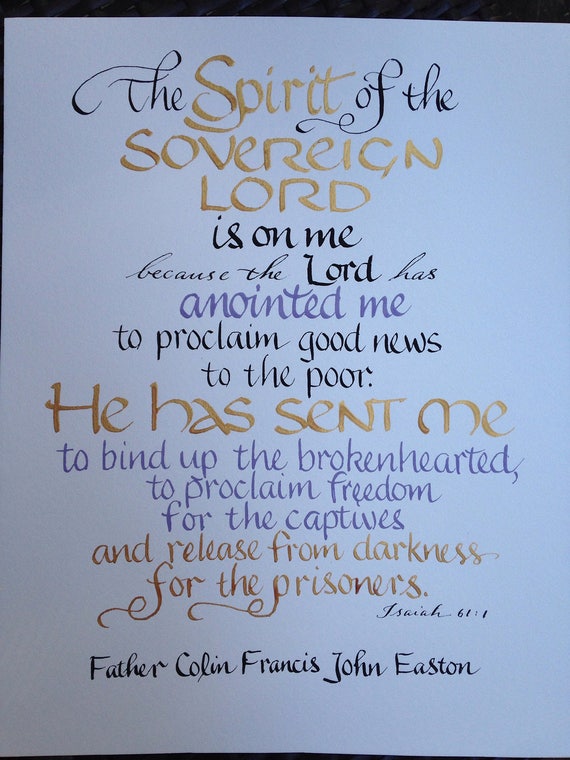 The Spirit of the
SOVEREIGN
LORD
is on me
because the Lord has
anointed me
to proclaim good news
to the poor.
He has sent me
to bind up the brokenhearted,
to proclaim freedom
for the captives
and release from darkness
for the prisoners.
Isaiah 61:1
Father Colin Francis John Easton